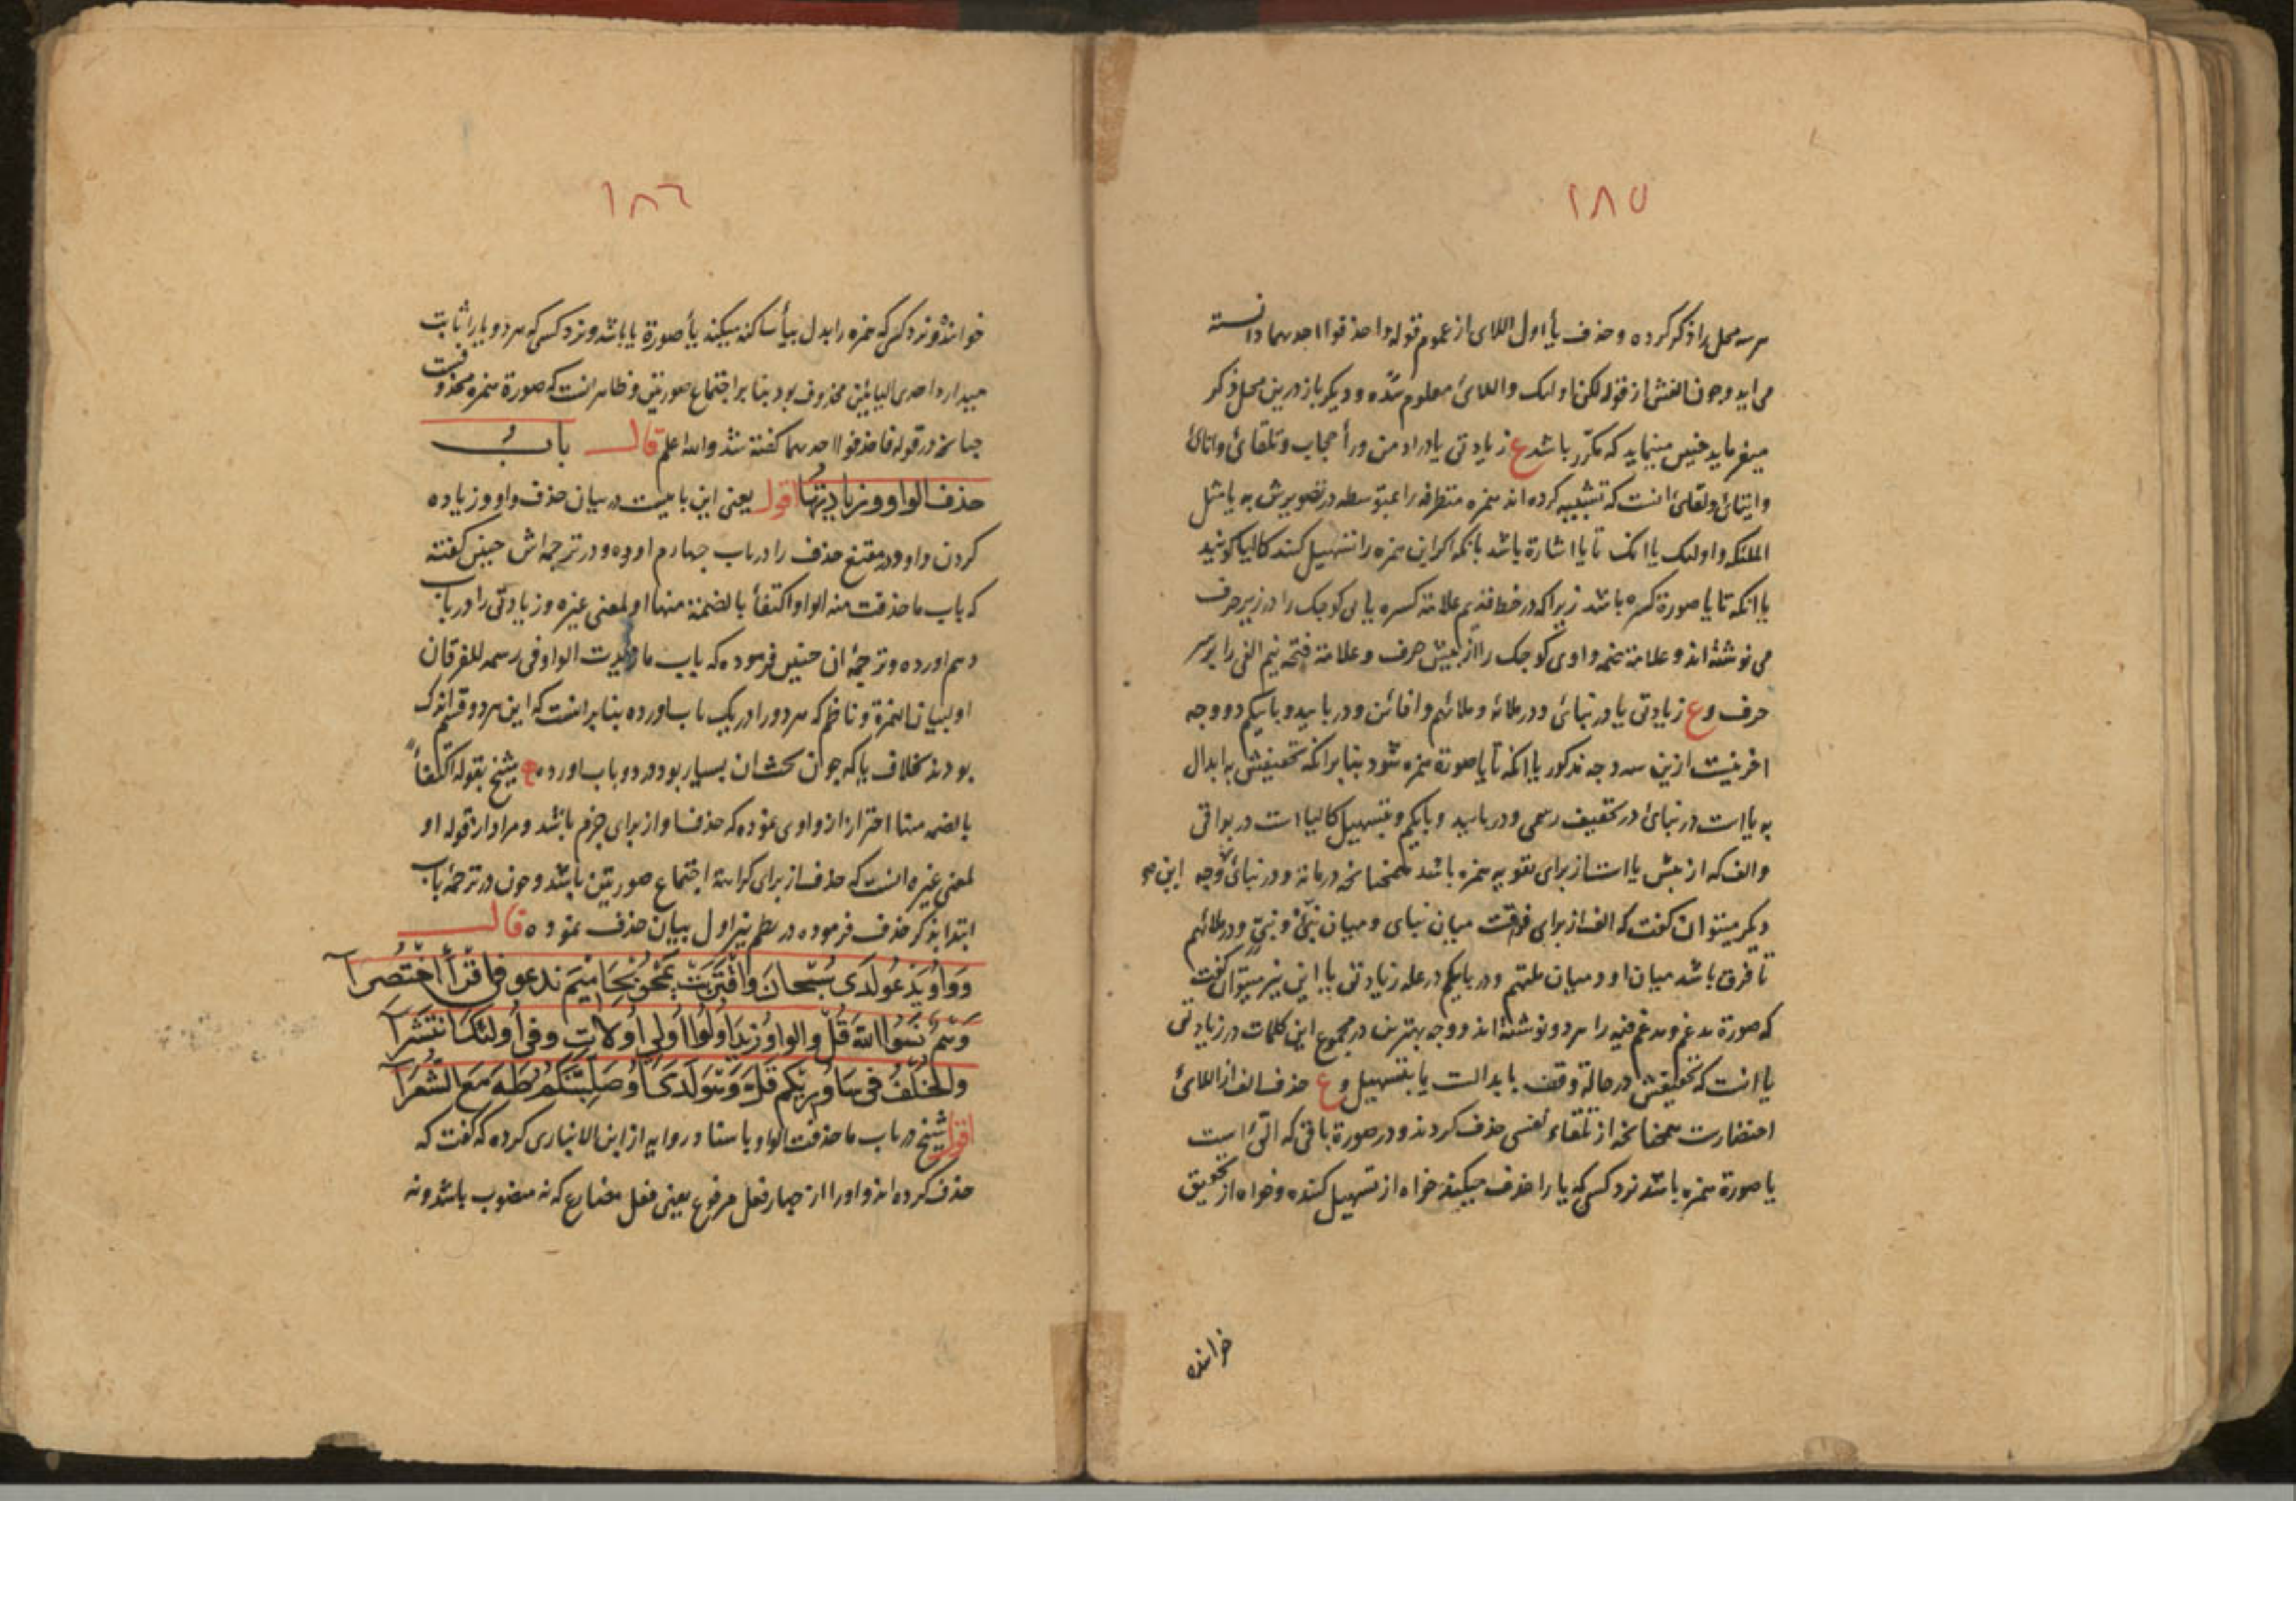 ١٨٥
هر سه محل را ذکر کرده و حذف یأ اول اللای از عموم قوله واحذفوا احدیهما دانسته
می اید وحون الفش از قوله لکن اولئک واللائ معلوم شده و دیکر باز درین محل ذکر
میفرماید خنین مینماید که مکرر باشد ع زیادتی یا در او من ورأ حجاب و تلقائ واناائ
وایتائ ولقائ انست که تشبیه کرده اند همزه متطرفه را بمتوسطه در تصویرش به یا مثل
الملئکه و اولئک یا انک تا یا اشارة باشد بانکه اکر این همزه را تسهیل کنند کالیا کویند
یا انکه تا یا صورة کسره باشد زیرا که در خط قدیم علامة کسره یا ی کوجک را در زیر حرف
می نوشته اند و علامة ضمه واوی کوجک را از پیش حرف و علامة فتحه نیم الفی را بر سر
حرف وع زیادتی یا در نبائ و در ملائه و ملائهم وافائن و در باید و بایکم دو وجه
اخرنیست ازین سه وجه مذکور یا انکه تا یا صورة همزه شود بنا برانکه تخفیفش به ابدال
به یا است در نبائ در تخفیف رسمی و در باید و بایکم و بتسهیل کالیا است در بواقی
والف که از پیش یا است از برای تقویه همزه باشد همجنانخه در مائة و در نبائ وجه این
دیکر میتوان کفت که الف از برای فرقت میان نبای و میان نبئ و نبی و در ملائهم
تا فرق باشد میان او و میان ملتهم و در بایکم در علة زیادتی یا این نیز میتوان کفت
که صورة مدغم و مدغم فیه را هر دو نوشته اند و وجه بهترین در مجموع این کلمات در زیادتی
یا انت که تخفیفش در حالة وقف یا بدالست یا بتسهیل وع حذف الف از اللائ
اختصارت همجنانخه از تلقاء نفسی حذف کردند و در صورة باقی که الئ است
یا صورة همزه باشد نزد کسی که یا را حذف میکند خواه از تسهیل کننده و خواه از تحقیق
خواننده
١٨٦
خواننده و نزد کسی که همزه را بدل بیأ ساکنه میکند یأ صورة یا باشد و نزد کسی که هر دو یا را ثابت
میدارد احدی الیائین محذوف بود بنا بر اجتماع صورتین و ظاهر انست که صورة همزه محذوفست
جنانخه در قوله فاحذفوا احدیهما کفته شد والله اعلم قال باب
حذف الواو وزیادتها اقول یعنی این بابیست در بیان حذف واو و زیاده
کردن واو در مقنع حذف را در باب جهارم اورده و در ترجمه اش جنین کفته
که باب ما حذفت منه الواو اکتفأ بالضمة منها او لمعنی غیره و زیادتی را در باب
دهم اورده و ترجمۀ ان جنین فرموده که باب ما زیدت الواو فی رسمه للفرقان
او لبیان الهمزة و ناظم که هر دو را در یک باب اورده بنا برانست که این هر دو قسم اندک
بودند بخلاف یا که جون بحثشان بسیار بود در دو باب اورده ع شیخ بقوله اکتفأ
بالضمه منها احتراز از واوی نموده که حذف او از برای جزم باشد و مراد از قوله او
لمعنی غیره انست که حذف از برای کراهة اجتماع صورتین باشد و جون در ترجمۀ باب
ابتدا بذکر حذف فرموده در نظم نیز اول بیان حذف نموده قال
وَوَاوُ یَدْعُ لَدَی سُبْحَانَ وَاقْتَرَبَتْ یَمْحُ بِحَامِیمَ نَدْعُ فِی اقْرَأِ اخْتُصِرَا
وَهُمْ نَسُوا اللّٰهَ قُلْ وَالوَاوُ زِیدَ اُولُوا اُولِی اُولَاتِ وَفِی اُولٰئِکَ انْتَشَرَا
وَالْخُلْفُ فِی سَاُورِیکُمْ قَلَّ وَهُوَ لَدَی اُوصَلِّبَنَّکُمُ طٰهَ مَعَ الشُّعَرَا
اقول شیخ در باب ما حذفت الواو باسناد روایه از ابن الانباری کرده که کفت که
حذف کرده اند واو را از جهار فعل مرفوع یعنی فعل مضارع که نه منصوب باشد و نه